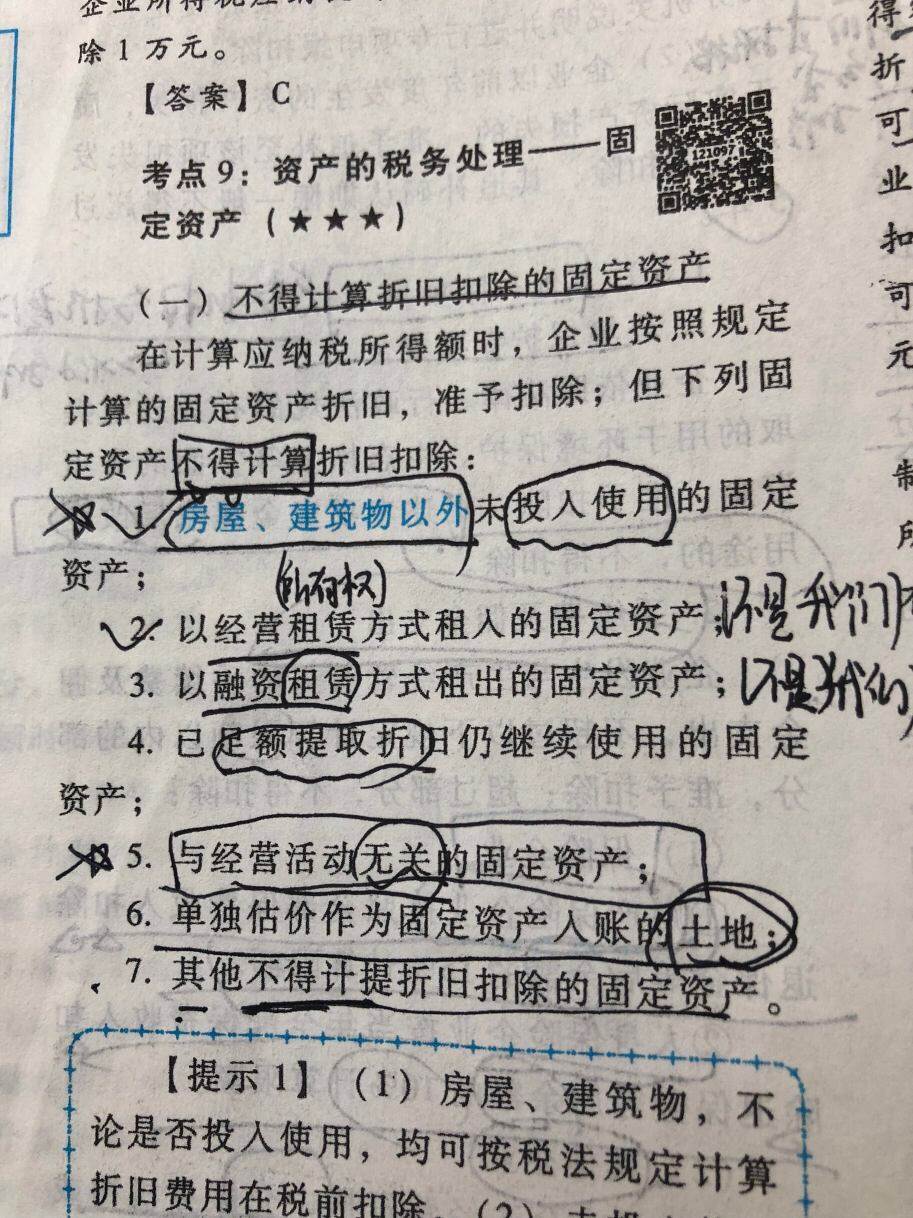 除1万元。
【答案】C
考点9：资产的税务处理——固
定资产（★★★）
121097
（一）不得计算折旧扣除的固定资产
在计算应纳税所得额时，企业按照规定
计算的固定资产折旧，准予扣除；但下列固
定资产不得计算折旧扣除：
1. 房屋、建筑物以外未投入使用的固定
资产；
(所有权)
2. 以经营租赁方式租入的固定资产；
(不是我们
3. 以融资租赁方式租出的固定资产；
(不是我们
4. 已足额提取折旧仍继续使用的固定
资产；
5. 与经营活动无关的固定资产；
6. 单独估价作为固定资产入账的土地；
7. 其他不得计提折旧扣除的固定资产。
【提示1】（1）房屋、建筑物，不
论是否投入使用，均可按税法规定计算
折旧费用在税前扣除。（2）
折
可
业
扣
可
元